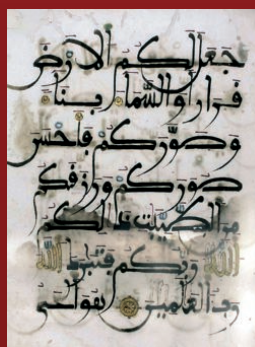 جعل لكم الارض
قرارا والسماء بناء
وصوركم فاحسن
صوركم ورزقكم
من الطيبت ذلكم
الله ربكم فتبرك الله
رب العلمين هو الحى